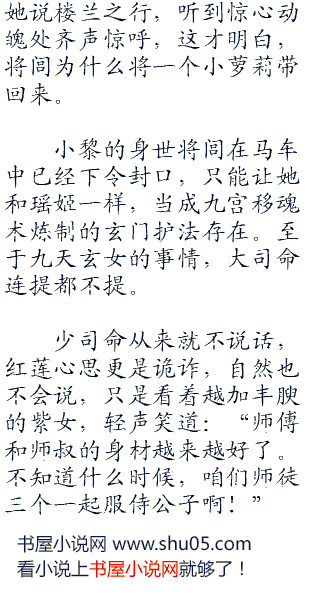 她说楼兰之行，听到惊心动
魄处齐声惊呼，这才明白，
将闾为什么将一个小萝莉带
回来。
小黎的身世将闾在马车
中已经下令封口，只能让她
和瑶姬一样，当成九宫移魂
术炼制的玄门护法存在。至
于九天玄女的事情，大司命
连提都不提。
少司命从来就不说话，
红莲心思更是诡诈，自然也
不会说，只是看着越加丰腴
的紫女，轻声笑道：“师傅
和师叔的身材越来越好了。
不知道什么时候，咱们师徒
三个一起服侍公子啊！”
书屋小说网 www.shu05.com
看小说上书屋小说网就够了！